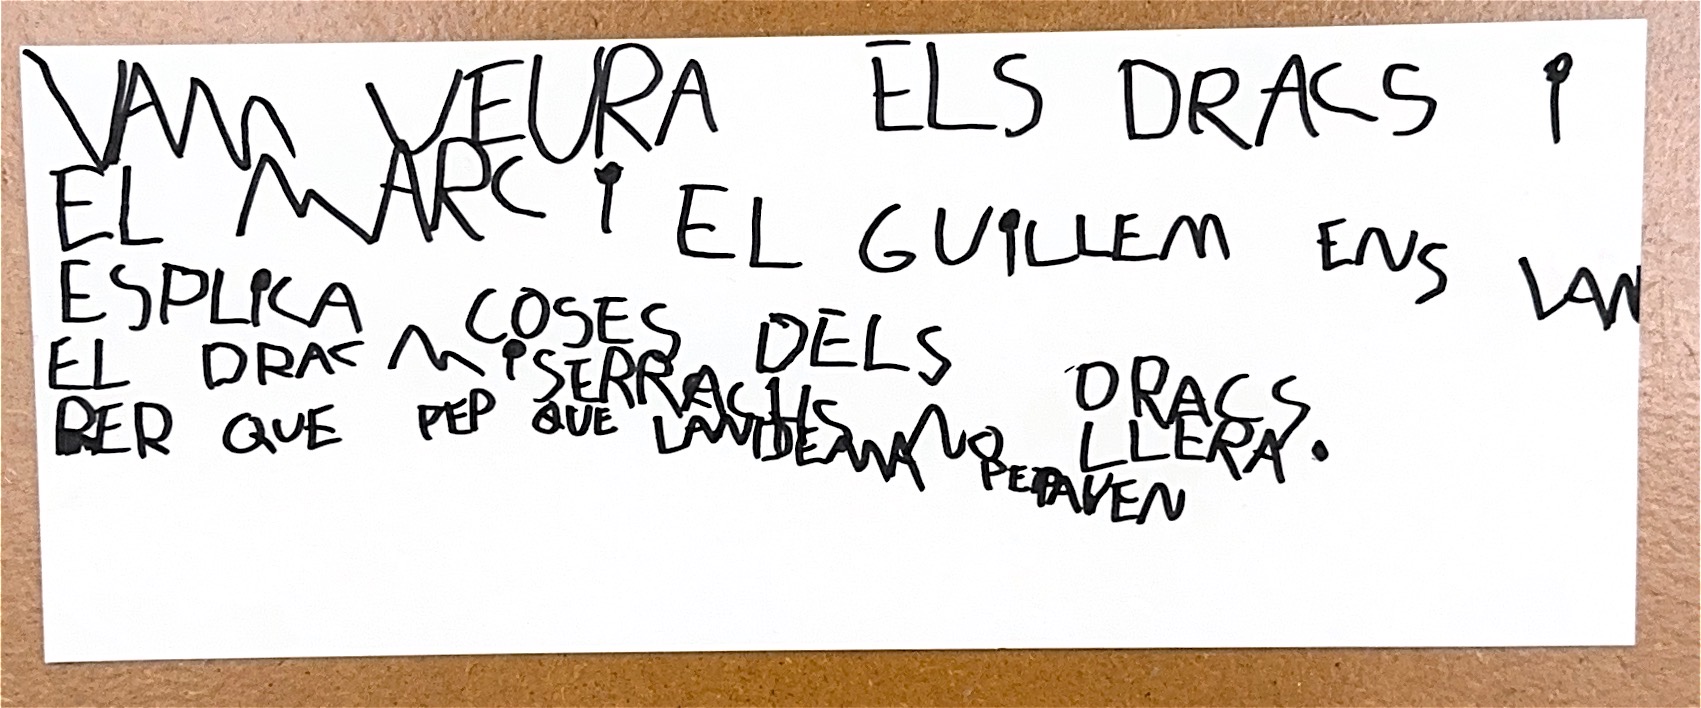 VAM VEURA ELS DRACS i
EL MARC i EL GUiLLEM ENS VAN
ESPLiCA COSES DELS DRACS.
EL DRAC MiSERRACHS NO LLERA.
PER QUE PEP QUE PEPAVEN